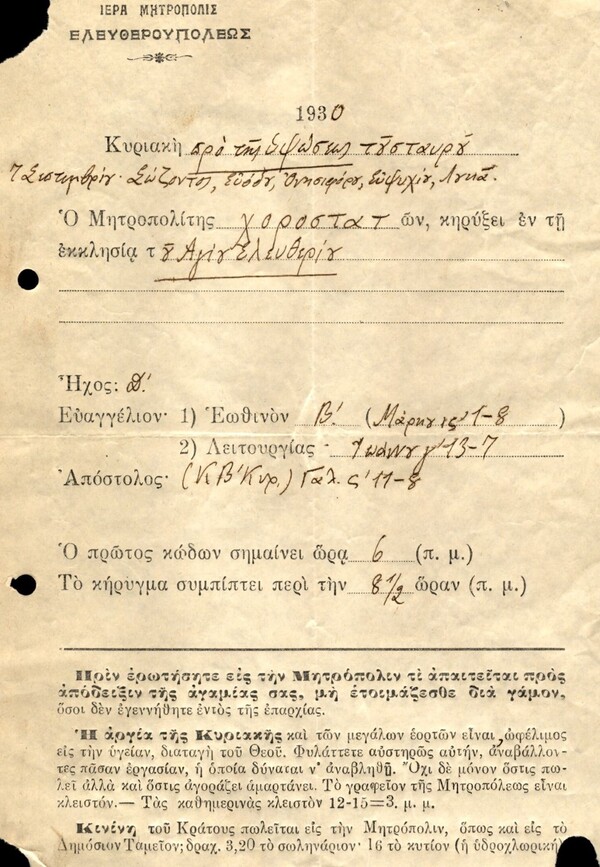 ΙΕΡΑ ΜΗΤΡΟΠΟΛΙΣ
ΕΛΕΥΘΕΡΟΥΠΟΛΕΩΣ
1930
Κυριακὴ πρὸ τῆς ὑψώσεως τοῦ σταυροῦ
7 Σεπτεμβρίου· Σώζοντος, Εὐόδου, Ὀνησιφόρου, Εὐψυχίου, Λουκᾶ.
Ὁ Μητροπολίτης χοροστατῶν, κηρύξει ἐν τῇ
ἐκκλησίᾳ τοῦ Ἁγίου Ἐλευθερίου
Ἦχος: δ.'
Εὐαγγέλιον· 1) Ἑωθινὸν Β.' (Μάρκου ις' 1-8 )
2) Λειτουργίας· Ἰωάννου γ' 13-7
Ἀπόστολος· (ΚΒ' Κυρ.) Γαλ. ς' 11-8
Ὁ πρῶτος κώδων σημαίνει ὥρᾳ 6 (π. μ.)
Τὸ κήρυγμα συμπίπτει περὶ τὴν 8 1/2 ὥραν (π. μ.)
Πρὶν ἐρωτήσητε εἰς τὴν Μητρόπολιν τὶ ἀπαιτεῖται πρὸς
ἀπόδειξιν τῆς ἀγαμίας σας, μὴ ἑτοιμάζεσθε διὰ γάμον,
ὅσοι δὲν ἐγεννήθητε ἐντὸς τῆς ἐπαρχίας.
Ἡ ἀργία τῆς Κυριακῆς καὶ τῶν μεγάλων ἑορτῶν εἶναι ὠφέλιμος
εἰς τὴν ὑγείαν, διαταγὴ τοῦ Θεοῦ. Φυλάττετε αὐστηρῶς αὐτήν, ἀναβάλλον-
τες πᾶσαν ἐργασίαν, ἡ ὁποία δύναται ν' ἀναβληθῇ. Ὄχι δὲ μόνον ὅστις πω-
λεῖ ἀλλὰ καὶ ὅστις ἀγοράζει ἁμαρτάνει. Τὸ γραφεῖον τῆς Μητροπόλεως εἶναι
κλειστόν.— Τὰς καθημερινὰς κλειστὸν 12-15=3. μ. μ.
Κινίνη τοῦ Κράτους πωλεῖται εἰς τὴν Μητρόπολιν, ὅπως καὶ εἰς τὸ
Δημόσιον Ταμεῖον; δραχ. 3,20 τὸ σωληνάριον· 16 τὸ κυτίον (ἡ ὑδροχλωρικὴ)